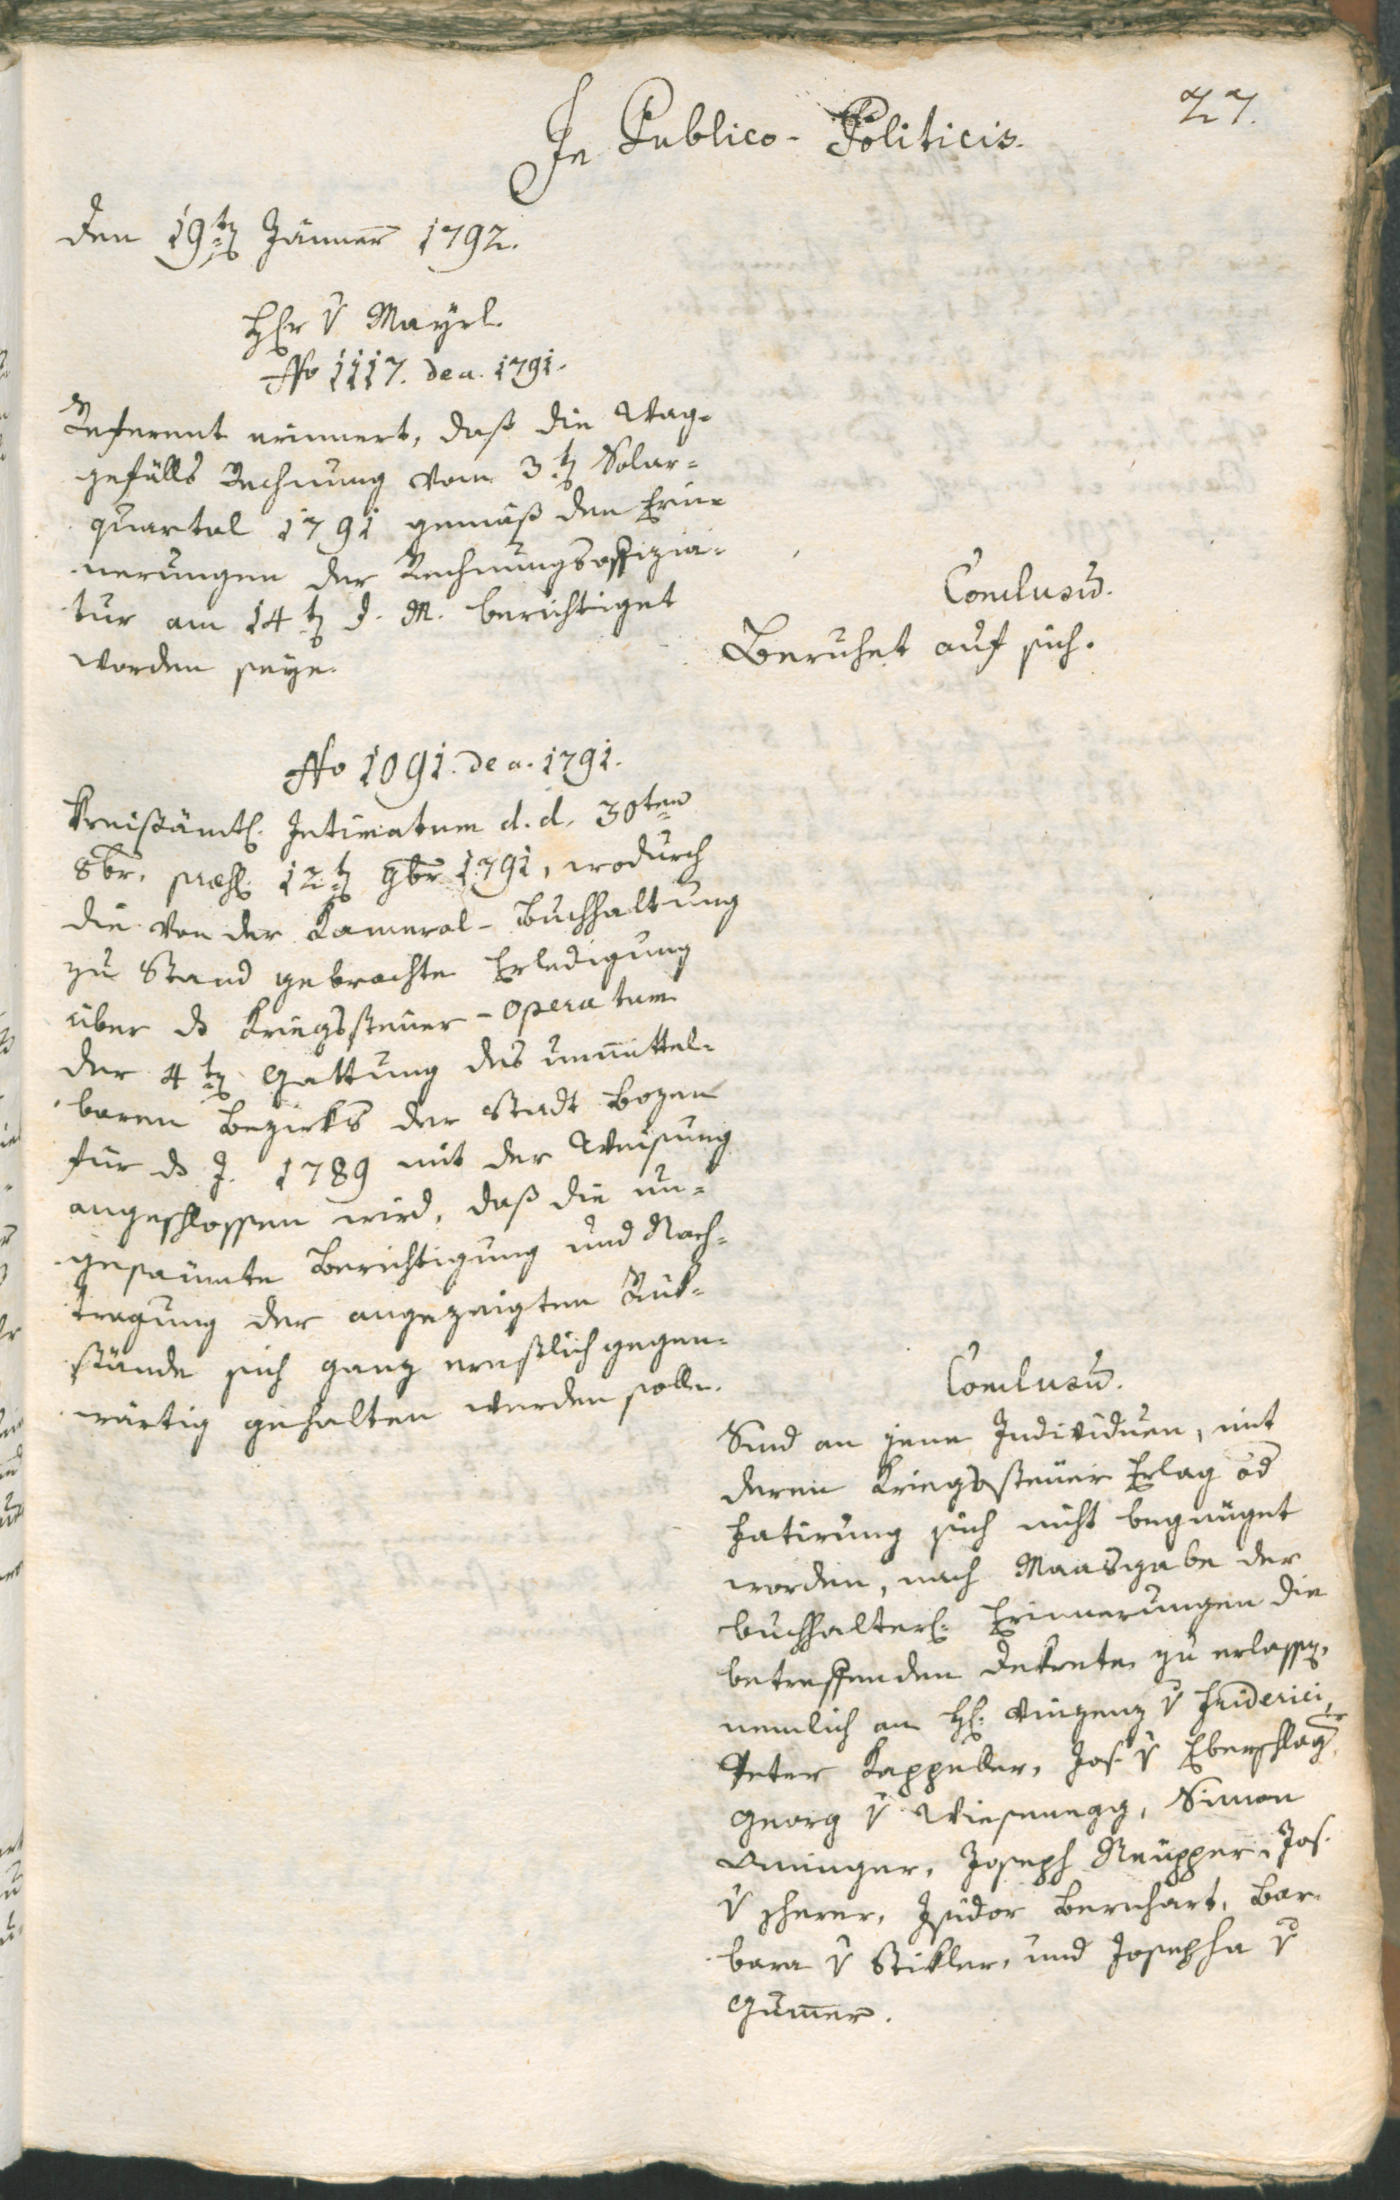 27.
In Publico-Politicis.
Den 19ten Jänner 1792.
Herr v Mayrl.
No 1117. de a. 1791.
Referent erinnert, daß die Wag-
gefälls Rechnung vom 3ten Solar-
quartal 1791 gemäß den Erin-
nerungen der Rechnungsoffizia-
tur am 14ten d. M. berichtiget
worden seye.
Conclusum.
Beruhet auf sich.
No 1091. de a. 1791.
Kreisämtl. Intimatum d. d. 30ten
8br. præs. 12ten 9br 1791, wodurch
die von der Kameral-Buchhaltung
zu Stand gebrachte Erledigung
über ds Kriegssteuer-Operatum
der 4ten Gattung des unmittel-
baren Bezirks der Stadt Bozen
für ds J. 1789 mit der Weisung
angeschlossen wird, daß die un-
gesäumte Berichtigung und Nach-
tragung der angezeigten Rük-
stände sich ganz ernstlich gegen-
wärtig gehalten werden solle.
Conclusum.
Sind an jene Individuen, mit
deren Kriegssteuer Erlag od
Fatirung sich nicht begnüget
worden, nach Maasgabe der
buchhalterl. Erinnerungen die
betreffenden Dekrete zu erlassen,
nemlich an H. Vinzenz v Friderici,
Peter Kappeller, Jos. v Eberschlager,
Georg v Wiesenegg, Simon
Aninger, Joseph Neupper, Jos.
v Zherer, Isidor Bernhart, Bar-
bara v Stikler, und Josepha v
Gum̄er.